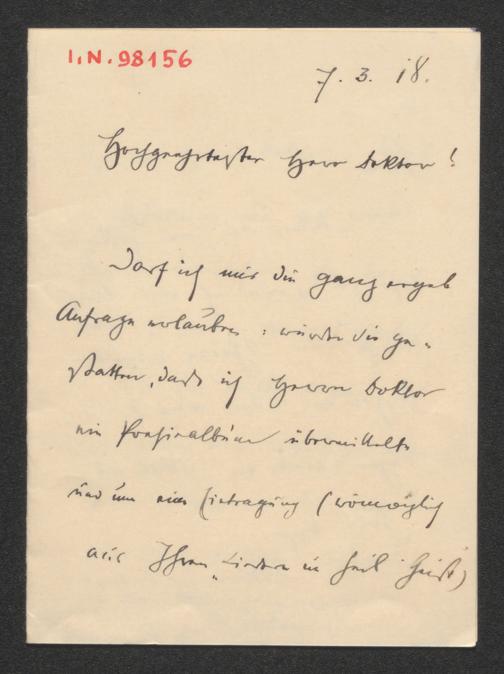 I.N. 98156
7. 3. 18.
Hochgeehrtester Herr Doktor!
Darf ich mir die ganz ergeb
Anfrage erlauben: würden Sie ge-
statten, dass ich Herrn Doktor
ein Poesiealbum übermittelte
und um eine Eintragung (womöglich
aus Ihren „Liedern in